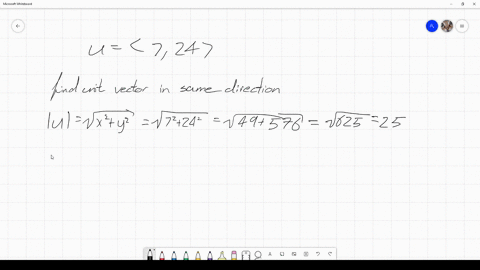 Microsoft Whiteboard
u = < 7, 24 >
find unit vector in same direction
|u| = √x²+y² = √7²+24² = √49+576 = √625 = 25